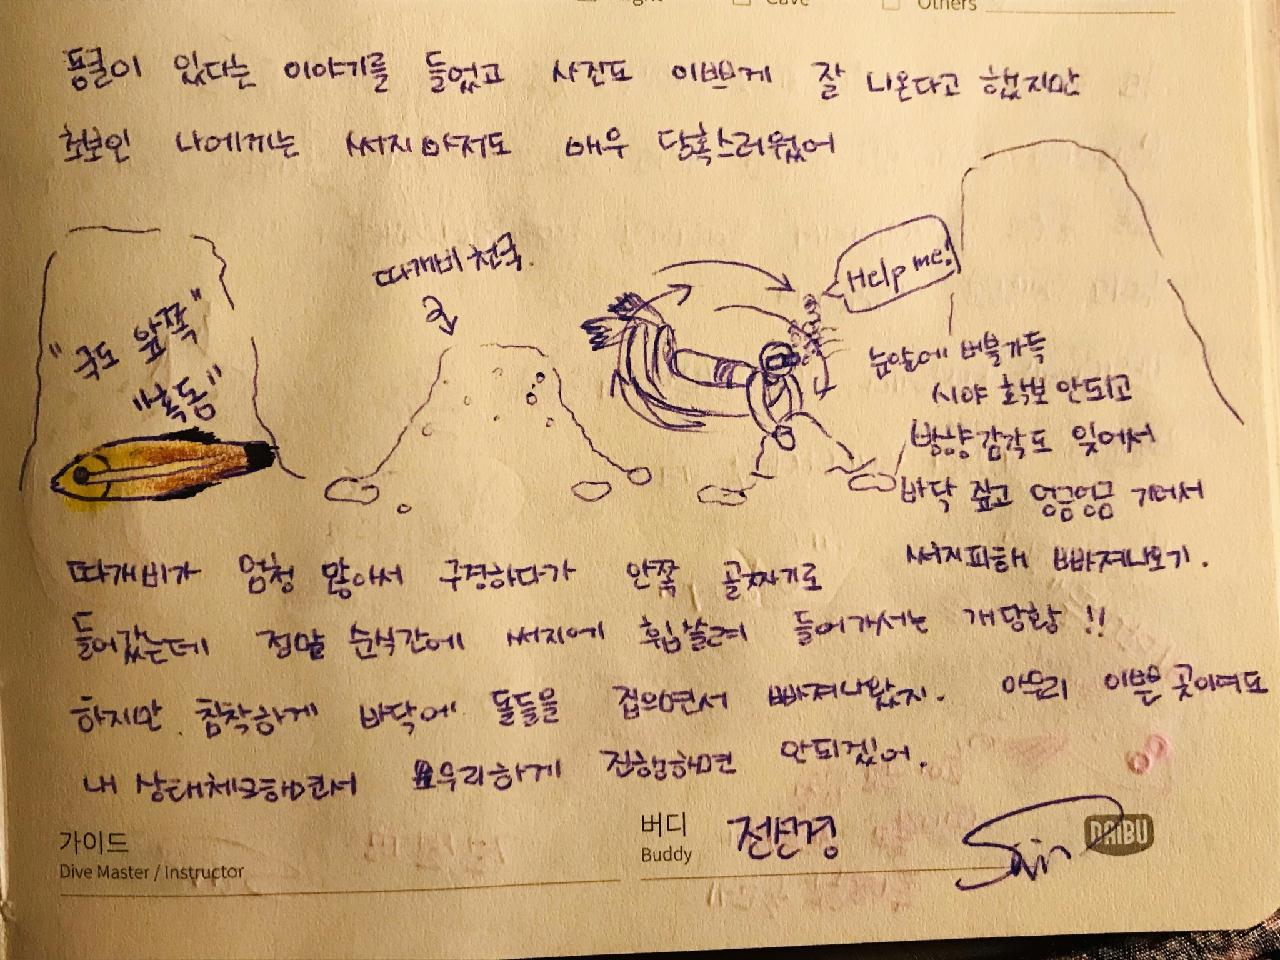 Cave
Others
동굴이 있다는 이야기를 들었고 사진도 이쁘게 잘 나온다고 했지만
초보인 나에게는 써지마저도 매우 당혹스러웠어
따개비 천국.
Help me!
"국도 앞쪽"
눈앞에 버블가득
시야 확보 안되고
방향감각도 잊어서
바닥 짚고 엉금엉금 기어서
써지피해 빠져나오기.
따개비가 엄청 많아서 구경하다가 안쪽 골짜기로
들어갔는데 정말 순식간에 써지에 휩쓸려 들어가서는 개당황!!
하지만 침착하게 바닥에 돌들을 집으면서 빠져나왔지. 아무리 이쁜 곳이여도
내 상태체크하면서 진행하면 안되겠어.
가이드
Dive Master / Instructor
버디
Buddy
DAIBU